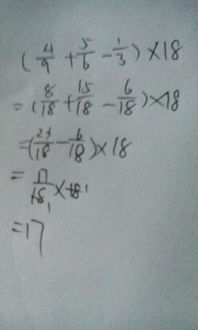 (4/9 + 5/6 - 1/3) × 18
= (8/18 + 15/18 - 6/18) × 18
= (23/18 - 6/18) × 18
= 17/18 × 18
= 17